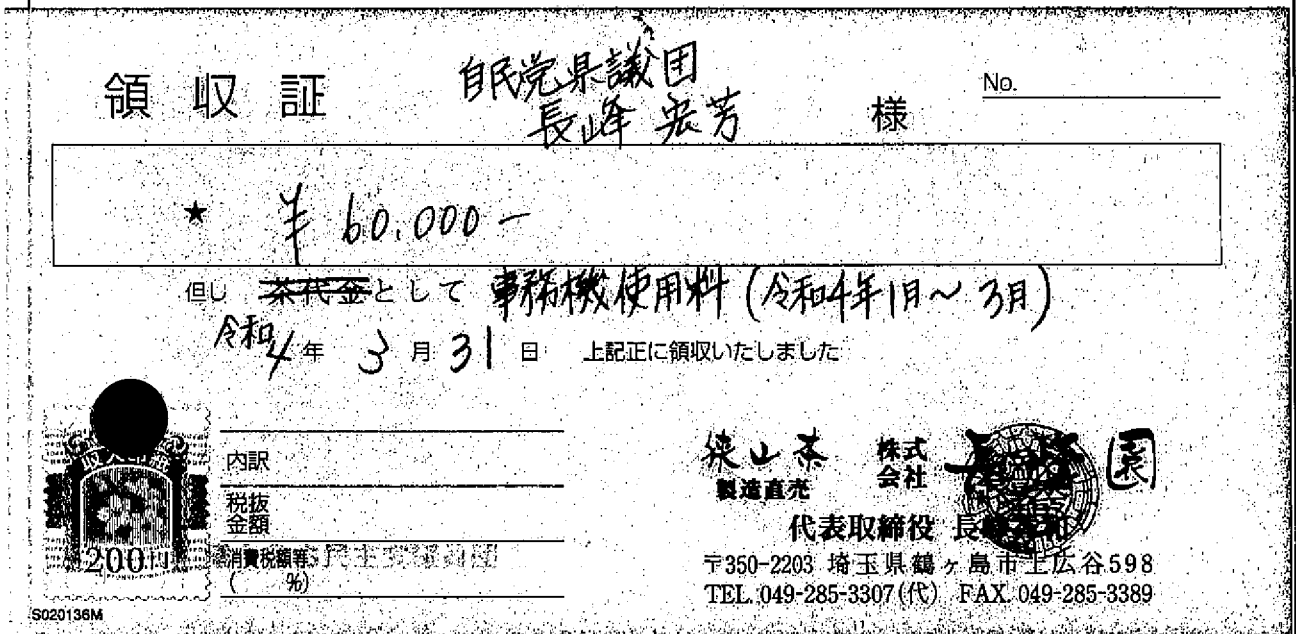 領収証
自民党県議団
長峰 宏芳 様
No.
★ ¥60,000-
但し 茶代金として 事務機使用料(令和4年1月~3月)
令和4年3月31日 上記正に領収いたしました
内訳
税抜金額
消費税額等
( %)
200円
S020136M
狭山茶 製造直売
株式会社 長峰園
代表取締役 長峰
〒350-2203 埼玉県鶴ヶ島市上広谷598
TEL. 049-285-3307(代) FAX. 049-285-3389